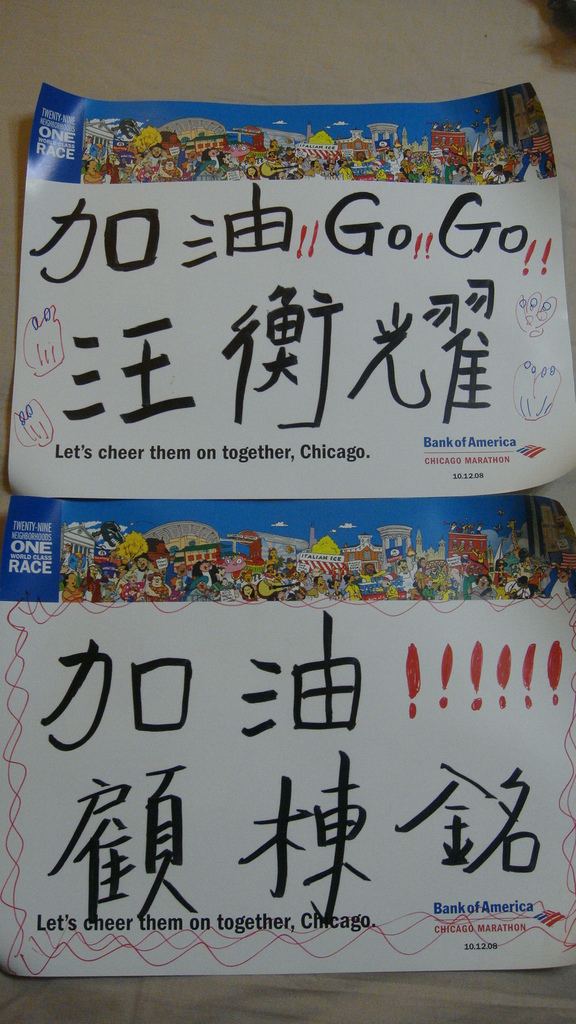 TWENTY-NINE
NEIGHBORHOODS
ONE
WORLD CLASS
RACE
ITALIAN ICE
加油!! Go!! Go!!
汪衡耀
Let's cheer them on together, Chicago.
Bank of America
CHICAGO MARATHON
10.12.08
TWENTY-NINE
NEIGHBORHOODS
ONE
WORLD CLASS
RACE
ITALIAN ICE
加油!!!!!!
顧棟銘
Let's cheer them on together, Chicago.
Bank of America
CHICAGO MARATHON
10.12.08